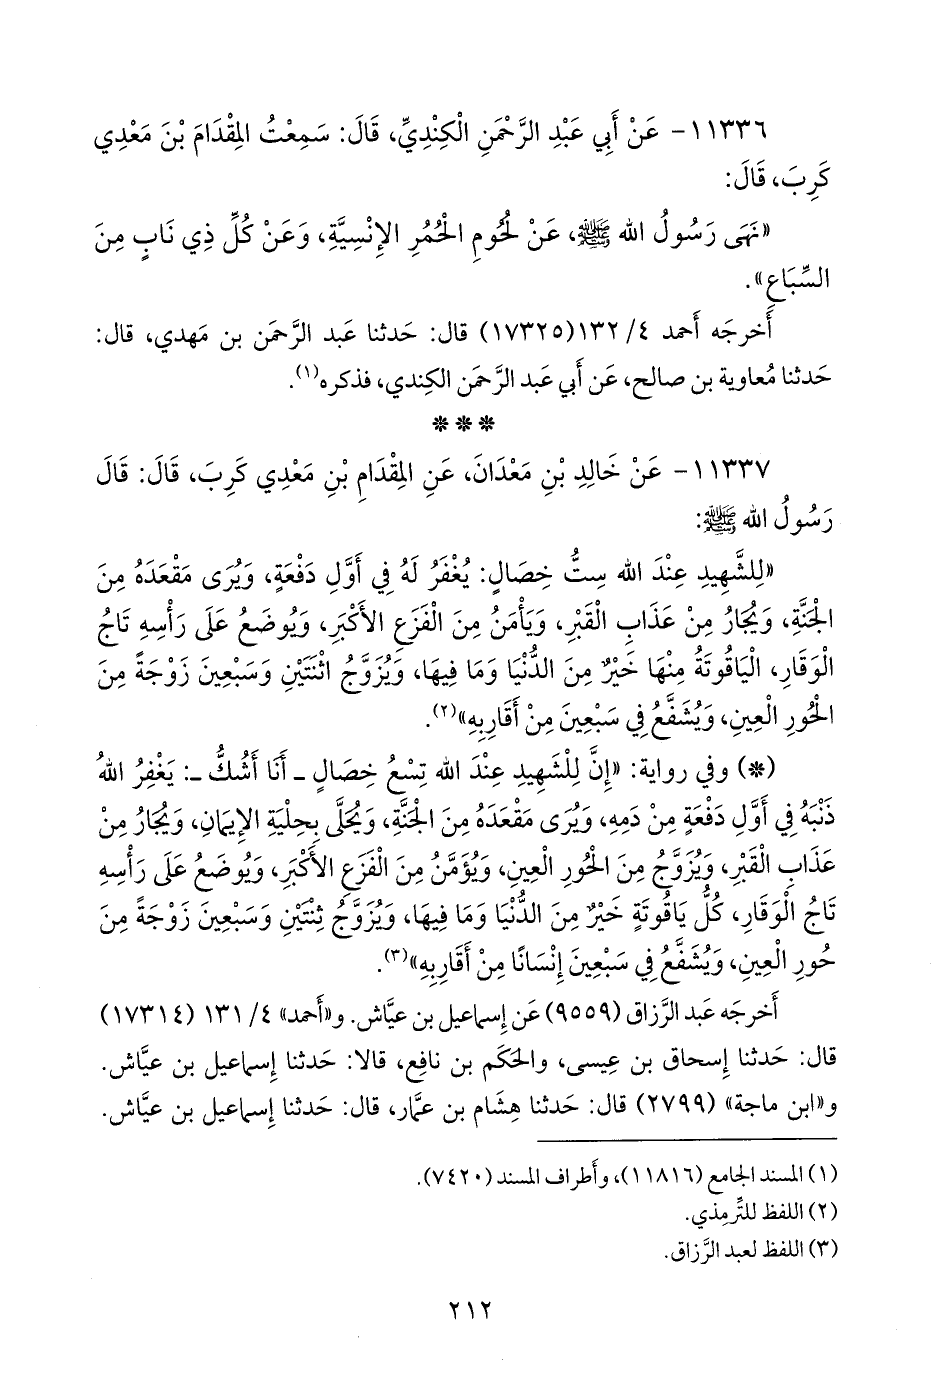 ١١٣٣٦- عَنْ أَبِي عَبْدِ الرَّحْمَنِ الْكِنْدِيِّ، قَالَ: سَمِعْتُ المِقْدَامَ بْنَ مَعْدِي
كَرِبَ، قَالَ:
«نَهَى رَسُولُ الله ﷺ، عَنْ لُحُومِ الحُمُرِ الإِنْسِيَّةِ، وَعَنْ كُلِّ ذِي نَابٍ مِنَ
السِّبَاعِ».
أَخرجَه أَحمد ٤/ ١٣٢(١٧٣٢٥) قال: حَدثنا عَبد الرَّحمَن بن مَهدي، قال:
حَدثنا مُعاوية بن صالح، عَن أَبي عَبد الرَّحمَن الكِندي، فذكره(١).
* * *
١١٣٣٧- عَنْ خَالِدِ بْنِ مَعْدَانَ، عَنِ المِقْدَامِ بْنِ مَعْدِي كَرِبَ، قَالَ: قَالَ
رَسُولُ الله ﷺ:
«لِلشَّهِيدِ عِنْدَ الله سِتُّ خِصَالٍ: يُغْفَرُ لَهُ فِي أَوَّلِ دَفْعَةٍ، وَيُرَى مَقْعَدَهُ مِنَ
الجَنَّةِ، وَيُجَارُ مِنْ عَذَابِ الْقَبْرِ، وَيَأْمَنُ مِنَ الْفَزَعِ الأَكْبَرِ، وَيُوضَعُ عَلَى رَأْسِهِ تَاجُ
الْوَقَارِ، الْيَاقُوتَةُ مِنْهَا خَيْرٌ مِنَ الدُّنْيَا وَمَا فِيهَا، وَيُزَوَّجُ اثْنَتَيْنِ وَسَبْعِينَ زَوْجَةً مِنَ
الحُورِ الْعِينِ، وَيُشَفَّعُ فِي سَبْعِينَ مِنْ أَقَارِبِهِ»(٢).
(*) وفي رواية: «إِنَّ لِلْشَهِيدِ عِنْدَ الله تِسْعَ خِصَالٍ ـ أَنَا أَشُكُّ ـ: يَغْفِرُ اللهُ
ذَنْبَهُ فِي أَوَّلِ دَفْعَةٍ مِنْ دَمِهِ، وَيُرَى مَقْعَدَهُ مِنَ الجَنَّةِ، وَيُحَلَّى بِحِلْيَةِ الإِيمَانِ، وَيُجَارُ مِنْ
عَذَابِ الْقَبْرِ، وَيُزَوَّجُ مِنَ الحُورِ الْعِينِ، وَيُؤَمَّنُ مِنَ الْفَزَعِ الأَكْبَرِ، وَيُوضَعُ عَلَى رَأْسِهِ
تَاجُ الْوَقَارِ، كُلُّ يَاقُوتَةٍ خَيْرٌ مِنَ الدُّنْيَا وَمَا فِيهَا، وَيُزَوَّجُ ثِنْتَيْنِ وَسَبْعِينَ زَوْجَةً مِنَ
حُورِ الْعِينِ، وَيُشَفَّعُ فِي سَبْعِينَ إِنْسَانًا مِنْ أَقَارِبِهِ»(٣).
أَخرجَه عَبد الرَّزاق (٩٥٥٩) عَن إِسماعيل بن عيَّاش. و«أَحمد» ٤/ ١٣١ (١٧٣١٤)
قال: حَدثنا إِسحاق بن عِيسى، والحَكَم بن نافِع، قالا: حَدثنا إِسماعيل بن عيَّاش.
و«ابن ماجة» (٢٧٩٩) قال: حَدثنا هِشَام بن عمَّار، قال: حَدثنا إِسماعيل بن عيَّاش.
(١) المسند الجامع (١١٨١٦)، وأَطراف المسند (٧٤٢٠).
(٢) اللفظ للتِّرمِذي.
(٣) اللفظ لعبد الرَّزاق.
٢١٢